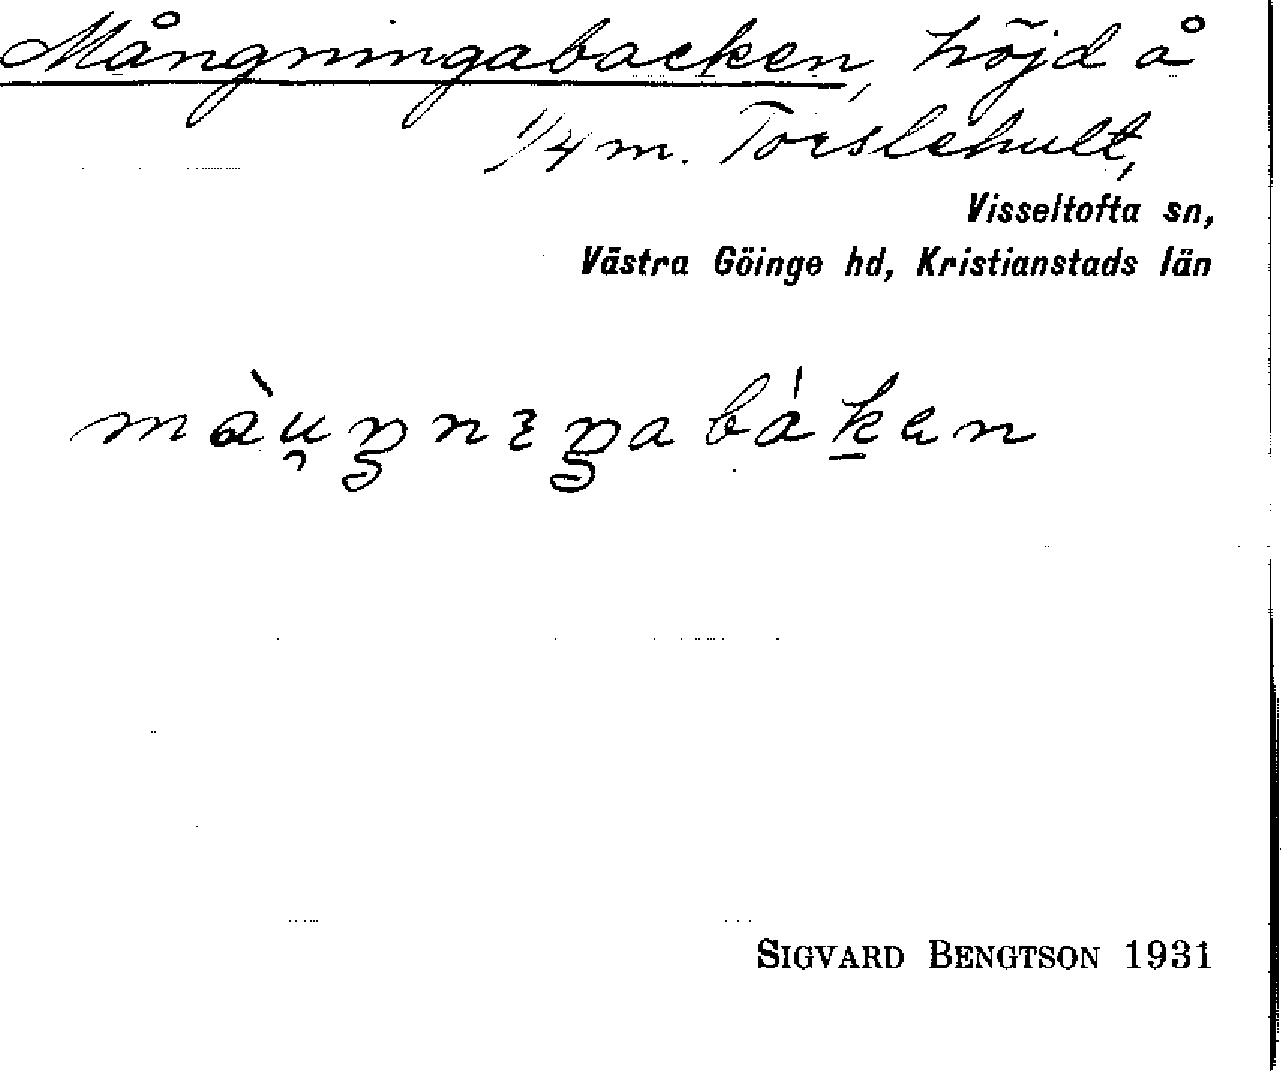 Mångningabacken, höjd å
1/4 m. Torslehult,
Visseltofta sn,
Västra Göinge hd, Kristianstads län
SIGVARD BENGTSON 1931